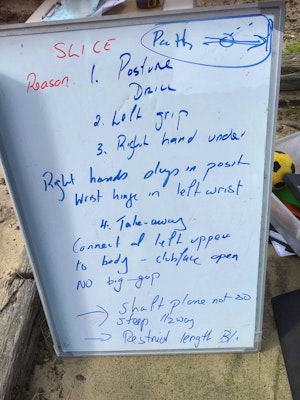 SLICE
Path
Reason 1. Posture
Drill
2. Left grip
3. Right hand under
Right hands stays in posit
Wrist hinge in left wrist
4. Take-away
Connect of left upper
to body - clubface open
NO big-gap
→ Shaft plane not so
steep 1/2way
→ Restrict length B/.